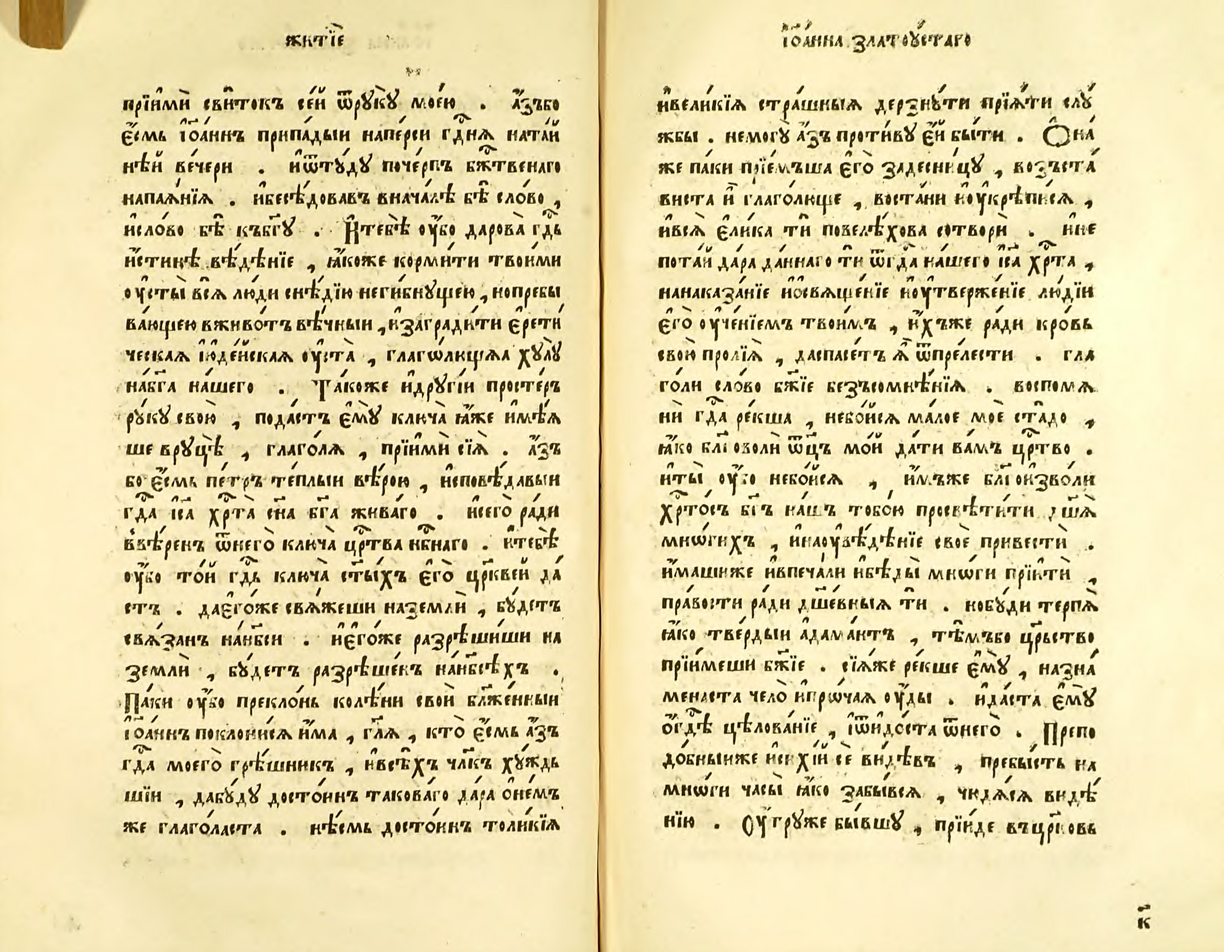 житїе
прїими свитокъ сей ѿрꙋкꙋ моею . а҆зъбо
є҆смь і҆оаннъ припадыи наперси гдⷭ҇нѧ натай
нѣй вечери . ѿѿтꙋдꙋ почерпъ бжⷭ҇твенаго
напаѧнїѧ . и҆бесѣдовавъ вначалѣ бѣ слово ,
и҆слово бѣ къбг҃ꙋ . И҆тебѣ ᲂу҆бо дарова гдⷭ҇ь
и҆стинѣ вѣдѣнїе , ꙗ҆коже кормити твоими
ᲂусты всѧ люди снѣдїю негибнꙋщею , нопребы
вающею вживотъ вѣчныи , и҆заградити є҆рети
ческаѧ і҆юдейскаѧ ᲂуста , глагѡлющѧа хꙋлꙋ
набг҃а нашего . Такоже и҆дрꙋгїи простеръ
рꙋкꙋ свою , подастъ є҆мꙋ ключа ꙗ҆же имѣѧ
ше врꙋцѣ , глаголѧ , прїими сїѧ . а҆зъ
бо є҆смь петръ теплыи вѣрою , и҆сповѣдавыи
гдⷭ҇а іс҃а хрⷭ҇та сн҃а бг҃а живаго . и҆сего ради
ввѣренъ ѿнего ключа црⷭ҇тва нбⷭ҇наго . и҆тебѣ
ᲂу҆бо той гдⷭ҇ь ключа ст҃ыхъ є҆го цр҃квей да
стъ . даєгоже свѧжеши наземли , бꙋдетъ
свѧзанъ нанб҃си . и҆є҆гоже разрѣшиши на
земли , бꙋдетъ разрѣшенъ нанб҃сѣхъ .
Паки ᲂу҆бо преклонь колѣни свои блж҃енныи
і҆оаннъ поклонисѧ и҆ма , гл҃ѧ , кто є҆смь а҆зъ
гдⷭ҇а моего грѣшникъ , и҆всѣхъ чл҃къ хꙋждь
шїи , дабꙋдꙋ достоинъ таковаго дара онемъ
же глаголаста . нѣсмь достоинъ толикїѧ
і҆оанна златоустаго
и҆великїѧ страшныѧ дерзнꙋти прїѧти слꙋ
жбы . немогꙋ а҆зъ противꙋ є҆й быти . Ѻна
же паки прїемъша є҆го задесницꙋ , возъста
виста и҆ глаголюще , востани иᲂукрѣписѧ ,
и҆всѧ є҆лика ти повелѣхова сотвори . ине
потай дара даннаго ти ѿгдⷭ҇а нашего іс҃а хрⷭ҇та ,
нанаказанїе иѡсвѧщенїе иᲂутверженїе людїи
є҆го ᲂученїемъ твоимъ , и҆хъже ради кровь
свою пролїѧ , даспасетъ ѧ҆ ѿпрелести . гла
голи слово бж҃їе безъсомнѣнїѧ . воспомѧ
ни гдⷭ҇а рекша , небойсѧ малое мое стадо ,
ꙗ҆ко бл҃гоизволи ѿц҃ъ мой дати вамъ црⷭ҇тво .
и҆ты ᲂу҆бо небойсѧ , и҆мъже бл҃гоизволи
хрⷭ҇тосъ бг҃ъ нашъ тобою просвѣтити дш҃ѧ
мнѡгихъ , инаᲂувѣдѣнїе свое привести .
и҆машиже и҆впечали и҆бѣды мнѡги прїѧти ,
правости ради дш҃евныѧ ти . нобꙋди терпѧ
ꙗ҆ко твердыи адамантъ , тѣмъбо цр҃ьство
прїимеши бж҃їе . сїѧже рекше є҆мꙋ , назна
менаста чело ипрѡчаѧ ᲂуды . и҆даста є҆мꙋ
ѡгдⷭ҇ѣ цѣлованїе , і҆ѿидоста ѿнего . Препо
добныиже исихїи се видѣвъ , пребысть на
мнѡги часы ꙗ҆ко забывсѧ , чюдѧсѧ видѣ
нїю . Оутрꙋже бывшꙋ , прїиде въцр҃ковь
к҃